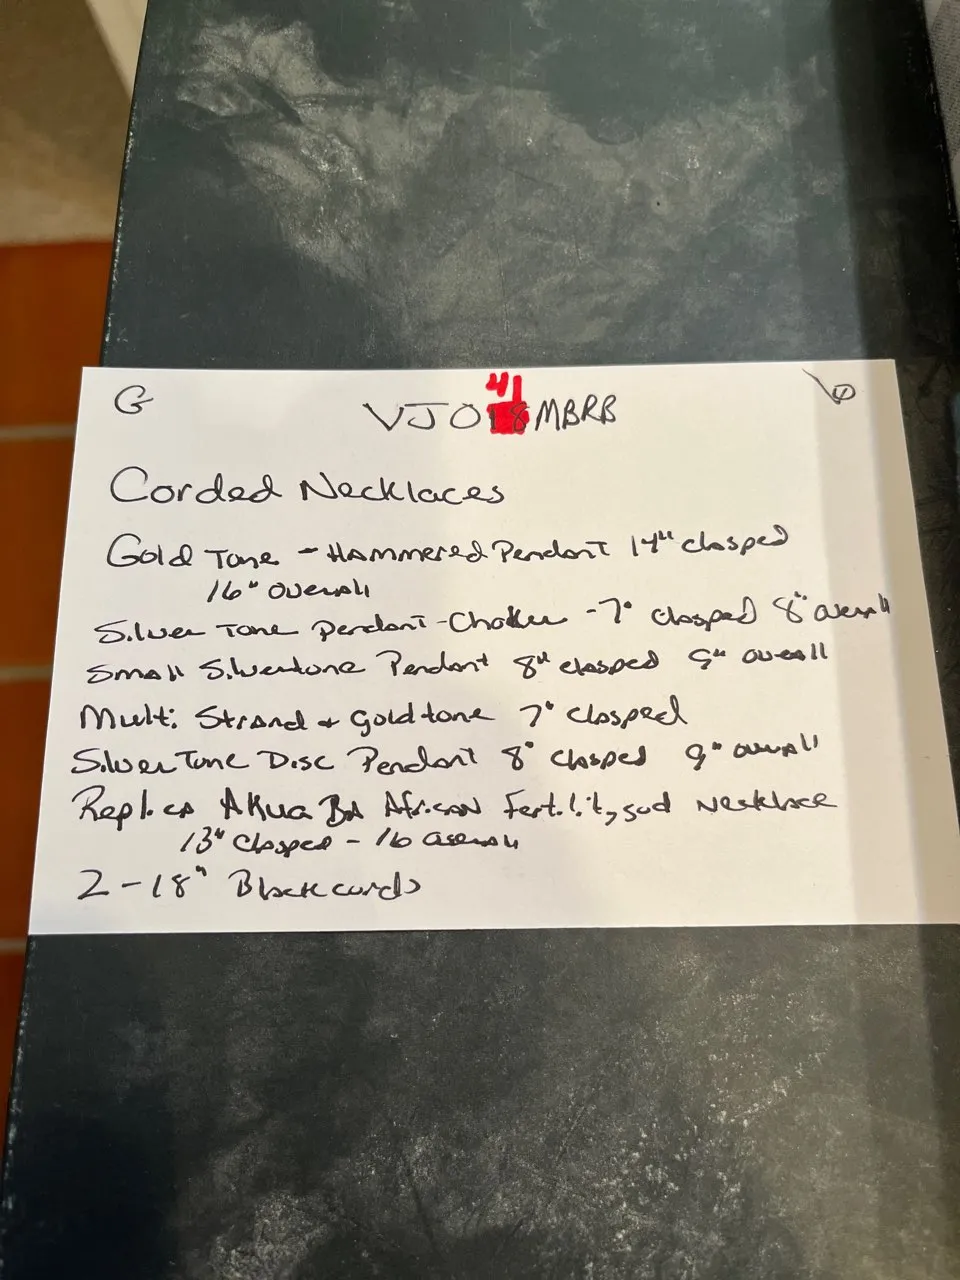 G
VJO41MBRB
Corded Necklaces
Gold Tone - Hammered Pendant 14" clasped
16" overall
Silver Tone Pendant - Choker - 7" clasped 8" overall
Small Silvertone Pendant 8" clasped 9" overall
Multi Strand + Goldtone 7" clasped
Silver Tone Disc Pendant 8" clasped 9" overall
Replica Akua Ba African Fertility god Necklace
13" clasped - 16 overall
2 - 18" Black cords